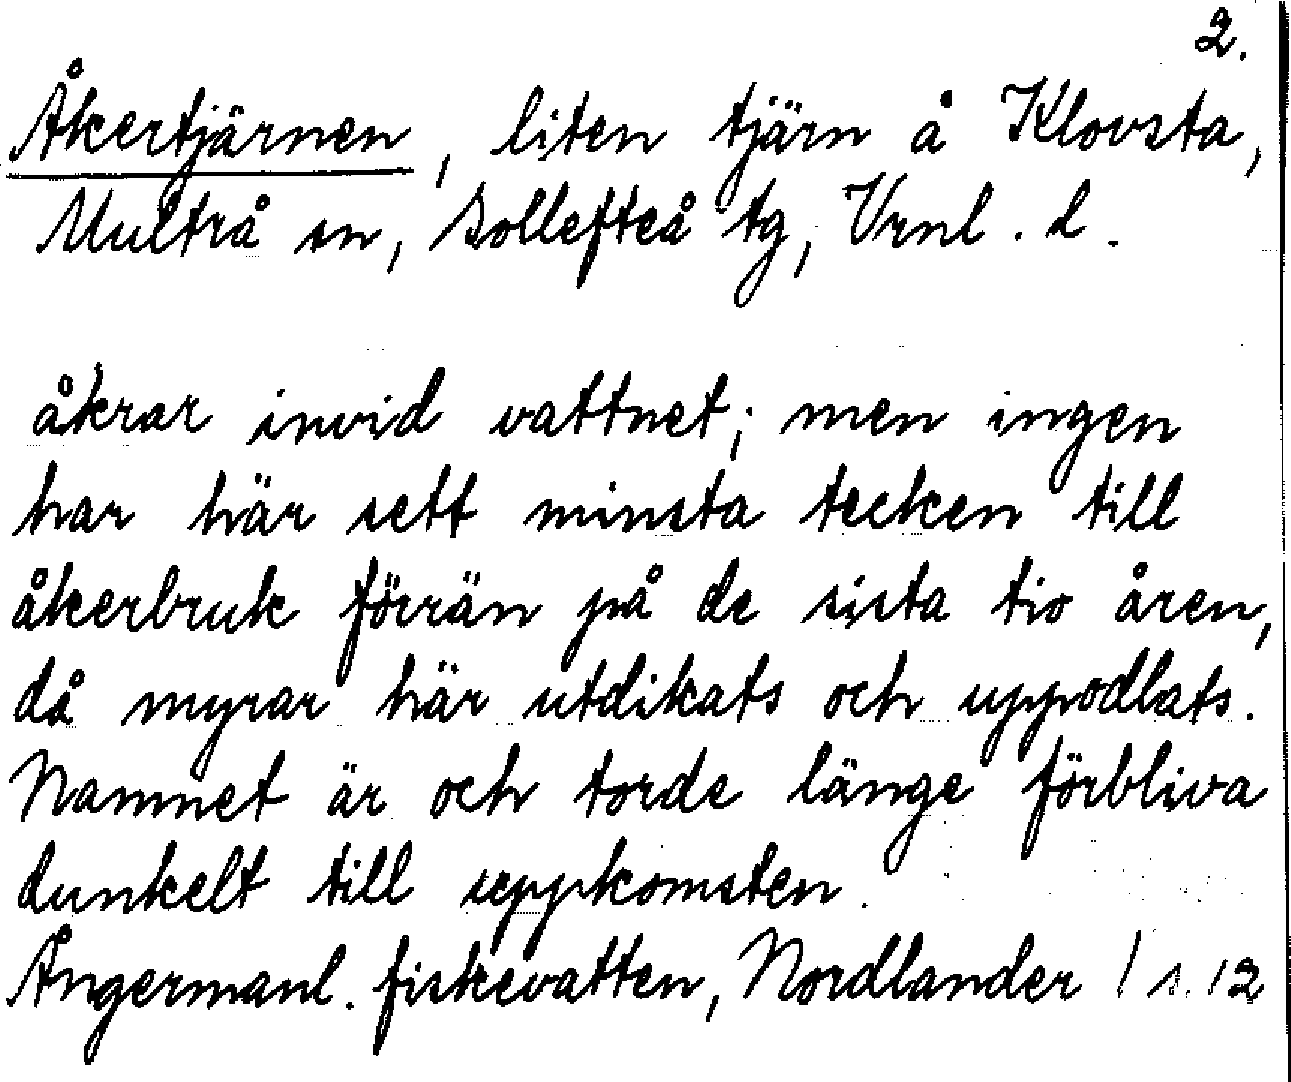 2.
Åkertjärnen, liten tjärn å Klovsta,
Multrå sn, Sollefteå tg, Vrnl. l.
åkrar invid vattnet; men ingen
har här sett minsta tecken till
åkerbruk förrän på de sista tio åren,
då myrar här utdikats och uppodlats.
Namnet är och torde länge förbliva
dunkelt till uppkomsten.
Ångermanl. fiskevatten, Nordlander / s. 12